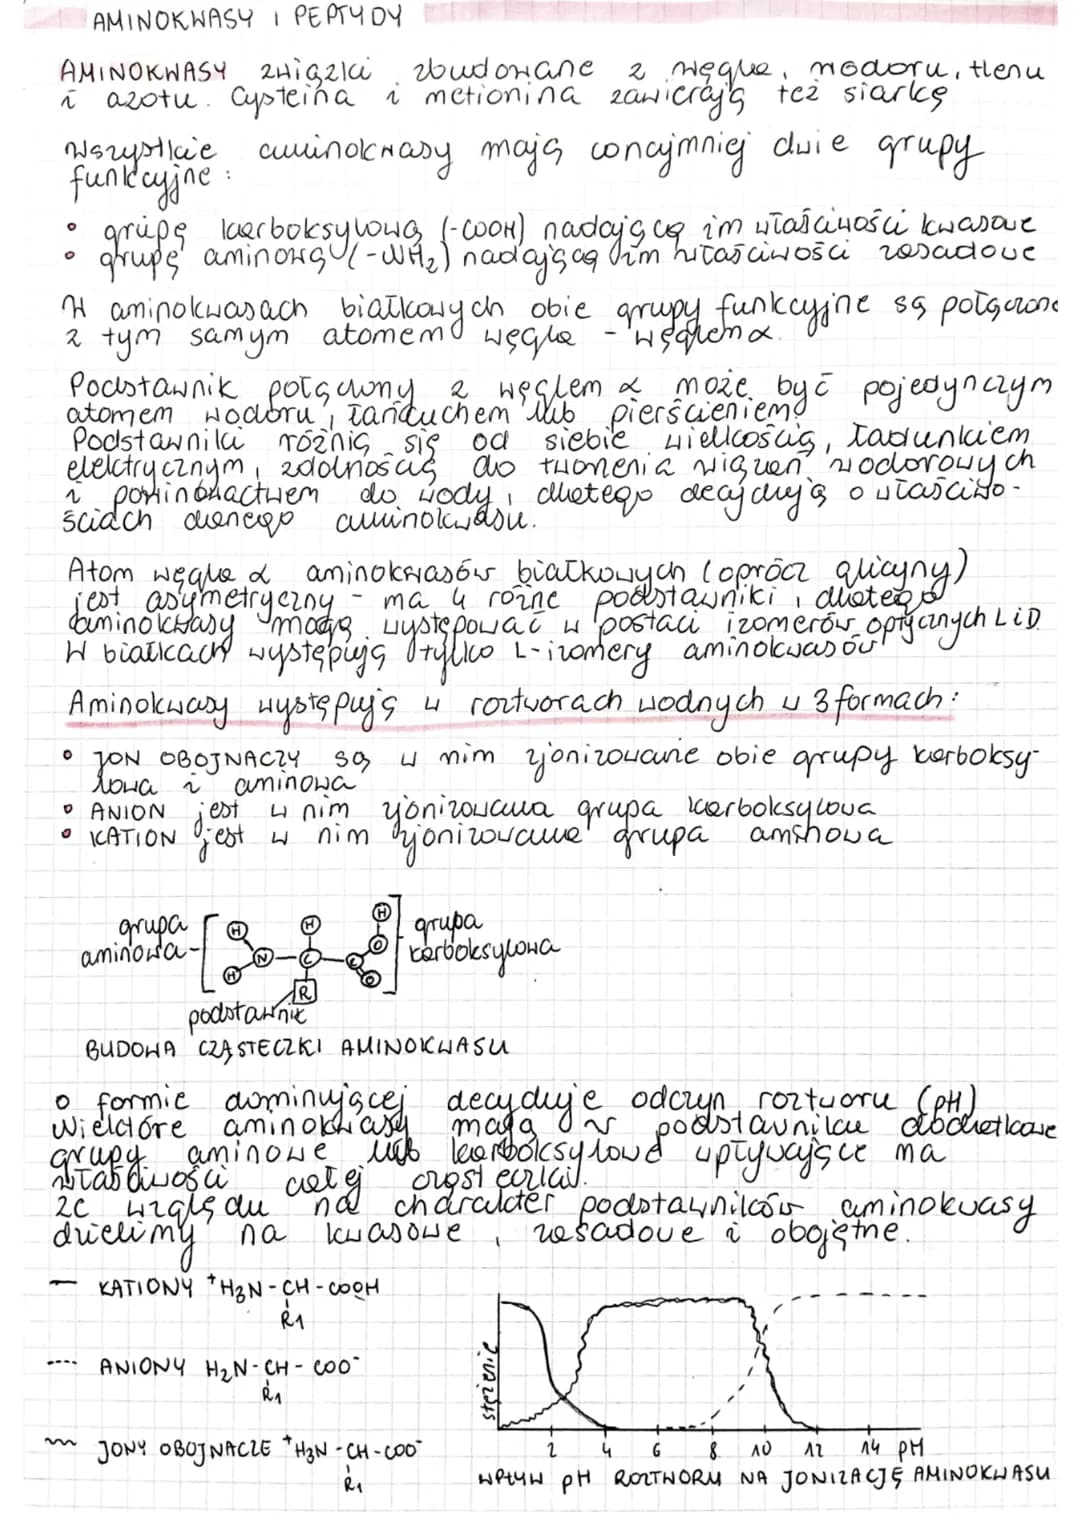 AMINOKWASY I PEPTYDY
AMINOKWASY związki zbudowane z węgla, wodoru, tlenu
i azotu. Cysteina i metionina zawierają też siarkę
Wszystkie aminokwasy mają conajmniej dwie grupy
funkcyjne:
• grupę karboksylową (-COOH) nadającą im właściwości kwasowe
• grupę aminową (-NH2) nadającą im właściwości zasadowe
W aminokwasach białkowych obie grupy funkcyjne są połączone
z tym samym atomem węgla - węglem α.
Podstawnik połączony z węglem α może być pojedynczym
atomem wodoru, łańcuchem lub pierścieniem
Podstawniki różnią się od siebie wielkością, ładunkiem
elektrycznym, zdolnością do tworzenia wiązań wodorowych
i powinowactwem do wody, dlatego decydują o właściwo-
ściach danego aminokwasu.
Atom węgla α aminokwasów białkowych (oprócz glicyny)
jest asymetryczny - ma 4 różne podstawniki, dlatego
aminokwasy mogą występować w postaci izomerów optycznych L i D.
W białkach występują tylko L-izomery aminokwasów
Aminokwasy występują w roztworach wodnych w 3 formach:
• JON OBOJNACZY są w nim zjonizowane obie grupy karboksy-
lowa i aminowa
• ANION jest w nim zjonizowana grupa karboksylowa
• KATION jest w nim zjonizowana grupa aminowa
grupa
aminowa
H H H
N C C O
H O
R
grupa
karboksylowa
podstawnik
BUDOWA CZĄSTECZKI AMINOKWASU
o formie dominującej decyduje odczyn roztworu (pH)
Wieletóre aminokwasy mają w podstawniku dodatkowe
grupy aminowe lub karboksylowe wpływające na
właściwości całej cząsteczki.
ze względu na charakter podstawników aminokwasy
dzielimy na kwasowe, zasadowe i obojętne.
— KATIONY +H3N-CH-COOH
R1
---- ANIONY H2N-CH-COO-
R1
JONY OBOJNACZE +H3N-CH-COO-
R1
stężenie
2 4 6 8 10 12 14 pH
WPŁYW pH ROZTWORU NA JONIZACJĘ AMINOKWASU